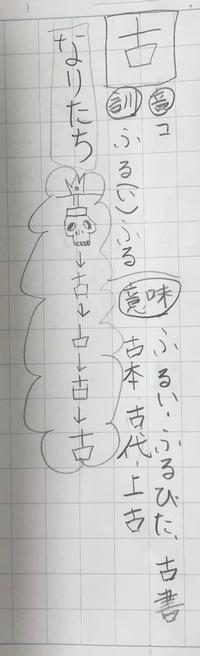 古
音 コ
訓 ふる(い)ふる
意味 ふるい・ふるびた、古書
古本・古代・上古
なりたち
↓古↓古↓古↓古